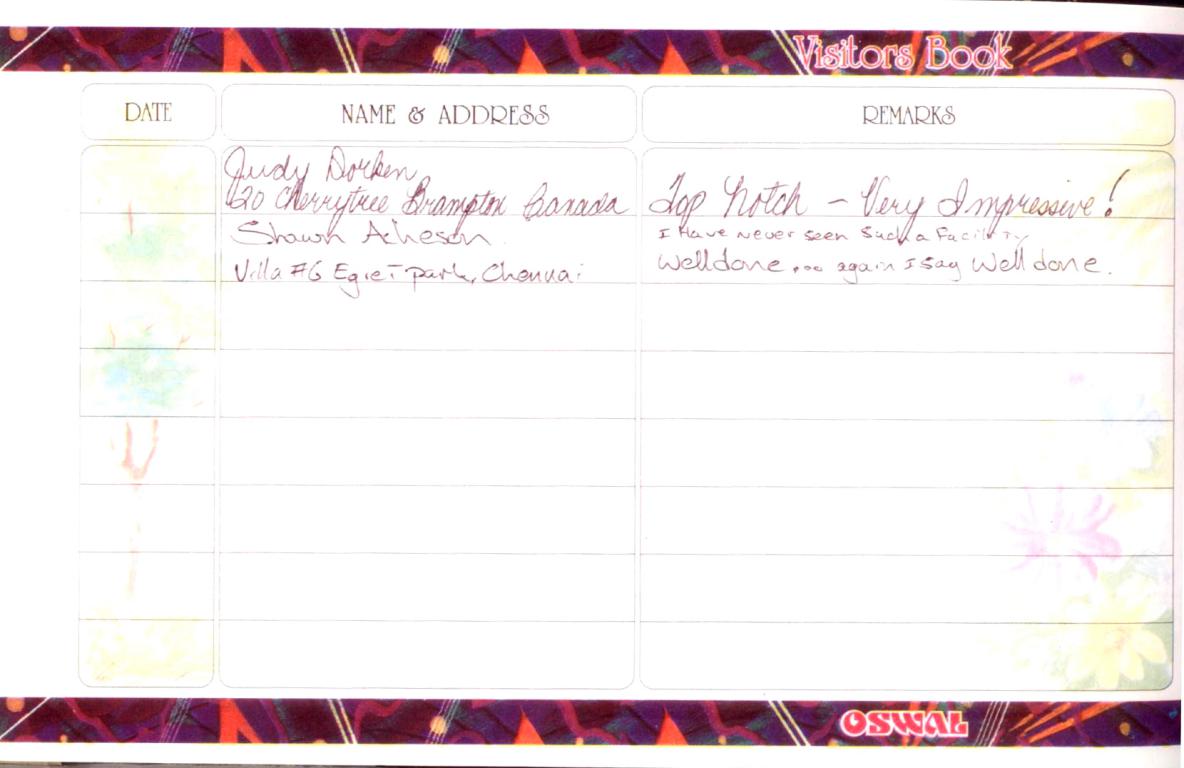 Visitors Book
DATE NAME & ADDRESS REMARKS
Judy Dorken
120 Cherrytree Brampton Canada Top Notch - Very Impressive!
Shawn Acheson I Have never seen Such a Facility
Villa #6 Egret park, Chennai Welldone... again I Say Well done.
OSWAL